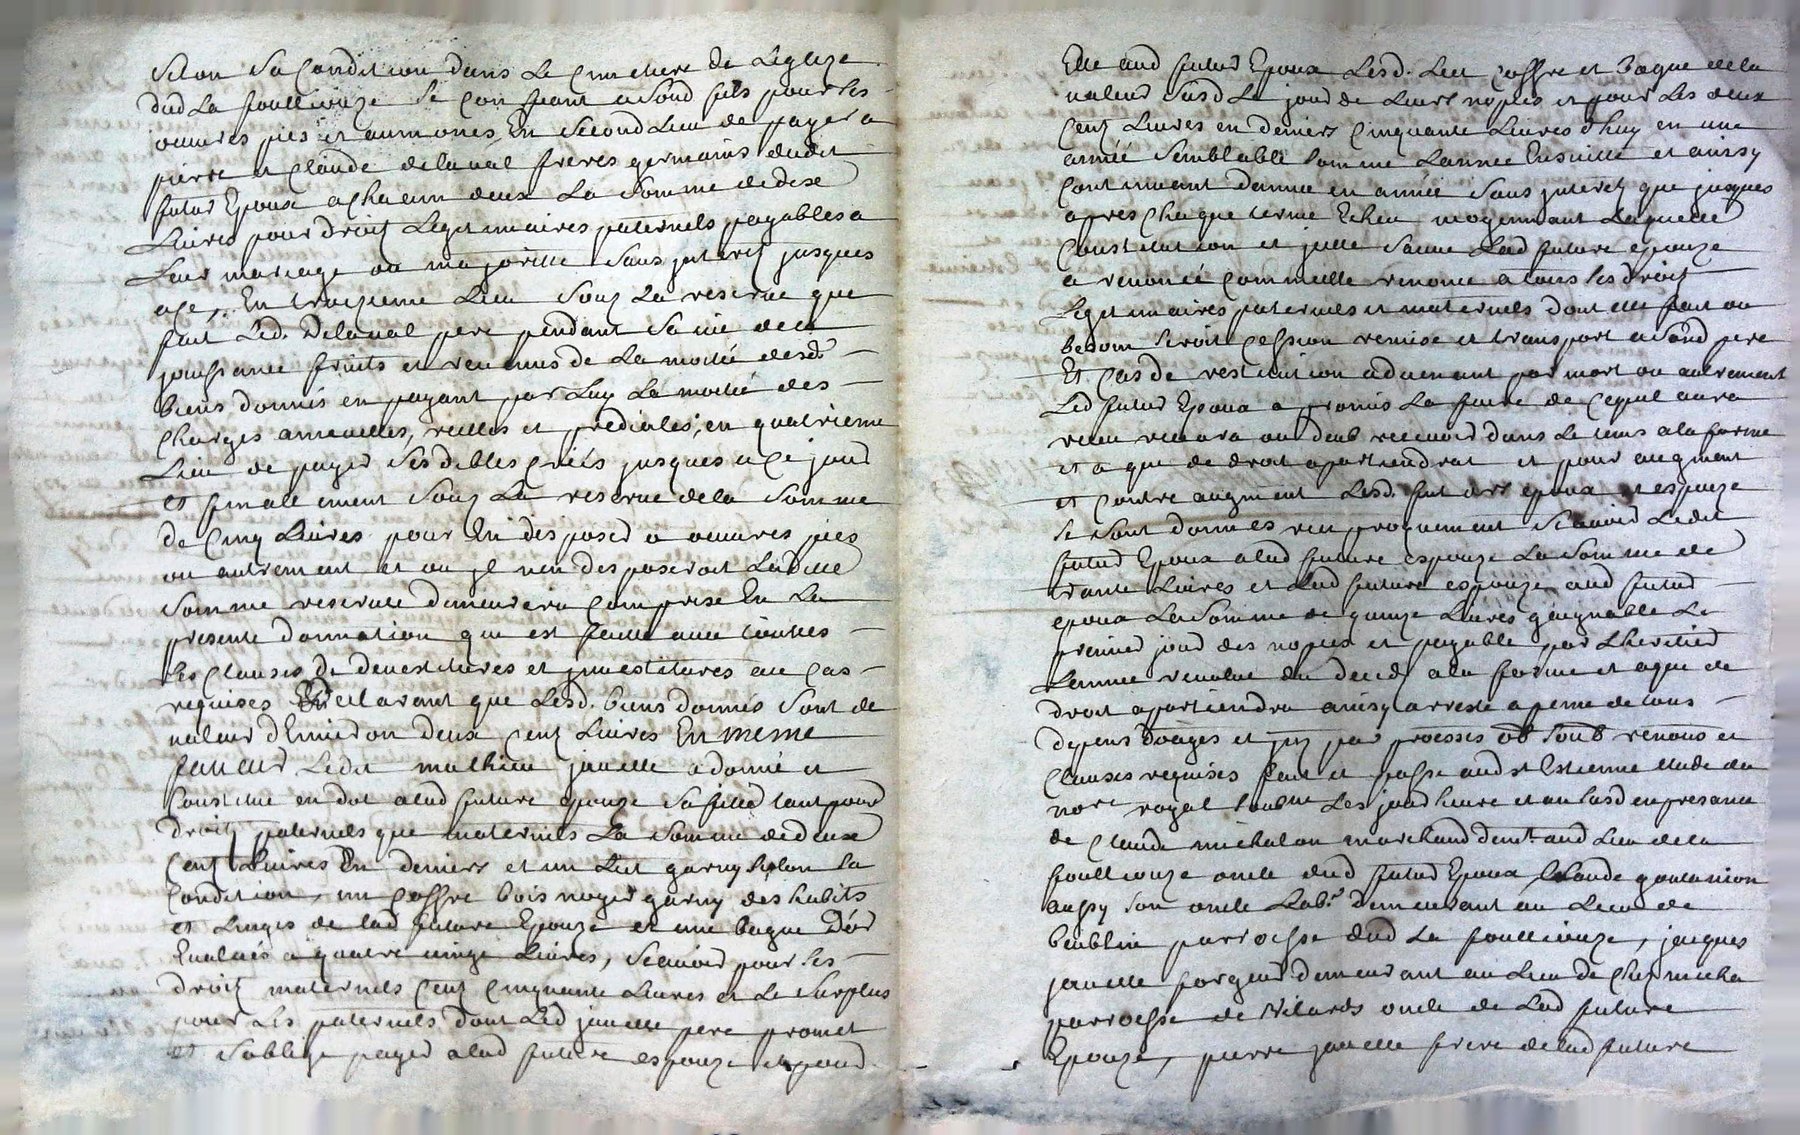 Selon Sa Condition dans Le Cimetiere de Leglize
dud La foulliouze Se Confiant a Sond fils pour les
oeuvres pies et aumones, En Second Lieu de payer a
pierre et Claude delaval freres germains dudit
futur Epoux a chacun deux La Somme de dix
Livres pour droitz Legitimaires paternels payables a
Leur mariage ou majoritté Sans interetz jusques
a ce, En troizieme Lieu Souz La reserve que
fait Led. Delaval pere pendant Sa vie de la
jouissance fruits et revenus de La moitié desd.
biens donnés en payant par Luy La moitié des
Charges annuelles, reelles et prediales, en quatrieme
Lieu de payer Ses debtes jusques a Ce jour
et finallement Souz La reserve de la Somme
de Cinq Livres pour En disposer a oeuvres pies
ou autrement et ou jl nen disposeroit Ladite
Somme reservée demeurera Comprise En La
presente donnation que est faitte avec touttes
les Clauses de devestitures et jnvestitures au Cas
requises Declarant que Lesd. biens donnés Sont de
valeur d'Environ deux Centz Livres En meme
faveur Ledit mathieu janelle a donné et
Constitué en dot a lad future epouze Sa fille tant pour
droitz paternels que maternels La Somme de deux
Centz Livres En deniers et un Lict garny Selon Sa
Condition, un Coffre bois noyer garny des habits
et Linges de lad future Epouze et une bague D'or
Evalués a quatre vingt Livres, Scavoir pour les
droitz maternels Centz Cinquante Livres et Le Surplus
pour Les paternels dont Led janelle pere promet
et Soblige payer a lad future espouze et pour
Elle aud futur Epoux Lesd. Lict Coffre et bague de la
valeur Susd Le jour de Leurs nopces et pour Les deux
Centz Livres en deniers Cinquante Livres d'huy en une
année Semblable Somme Lannée Ensuitte et aussy
Continuant dannée en année Sans jnteretz que jusques
apres Chaque terme Echeu moyennant Laquelle
Constitution et jcelle Sauve Lad future epouze
a renoncé Comme elle renonce a tous les droitz
Legitimaires paternels et maternels dont elle fait ou
besoin Seroit Cession remise et transport a Sond pere
Et Cas de restitution advenant par mort ou autrement
Led futur Epoux a promis La faire de Cequil aura
receu recevra ou deub recevoir dans Le tems a la forme
et a que de droit apartiendrat et pour augment
et Contre augment Lesd. futurs epoux et espouze
Se Sont donnés reciproquement Scavoir Ledit
futur Epoux a lad future espouze La Somme de
trante Livres et Lad future espouze aud futur
epoux La Somme de quinze Livres gaignable Le
premier jour des nopces et payable par Lheritier
Lannée revolue du deces a la forme et a que de
droit apartiendra ainsy arresté a peine de tous
depens domages et jnz par proesses ob Soub renons et
Clauses requises fait et passé aud St Estienne etude du
nore royal Soubne Les jour heure et an Susd en presance
de Claude michalon marchand demt. aud Lieu de la
foulliouze oncle dud futur Epoux Claude
aussy Son oncle Labr. demeurant au Lieu de
parroesse dud La foulliouze, jacques
janelle forgeur demeurant au Lieu de Chez micha
parroesse de Vilards oncle de Lad future
Epouze, pierre janelle frere de lad future